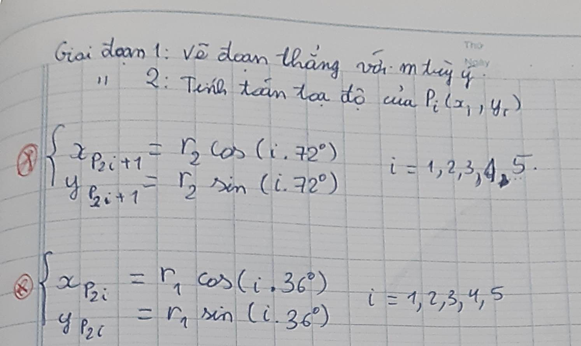 Thứ
Ngày
Giai đoạn 1: Vẽ đoạn thẳng với m tuỳ ý.
" 2: Tính toán toạ độ của Pᵢ(x₁, yᵣ)
x_{P2i+1} = r₂ cos(i.72°)
y_{P2i+1} = r₂ sin(i.72°)
i = 1,2,3,4,5.
x_{P2i} = r₁ cos(i.36°)
y_{P2i} = r₁ sin(i.36°)
i = 1,2,3,4,5